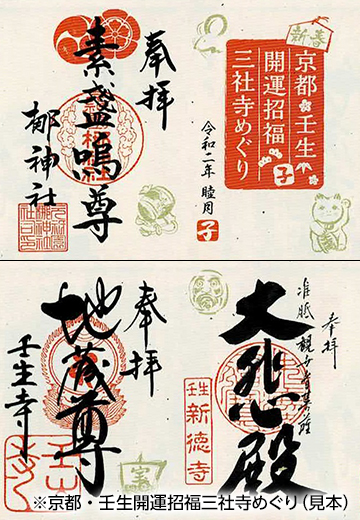 新春
京都壬生
開運招福
三社寺めぐり
子
令和二年 睦月
子
奉拝
素盞嗚尊
梛神社
奉拝
准胝観世音菩薩
大悲殿
壬生
新徳寺
奉拝
地蔵尊
壬生寺
※京都・壬生開運招福三社寺めぐり（見本）